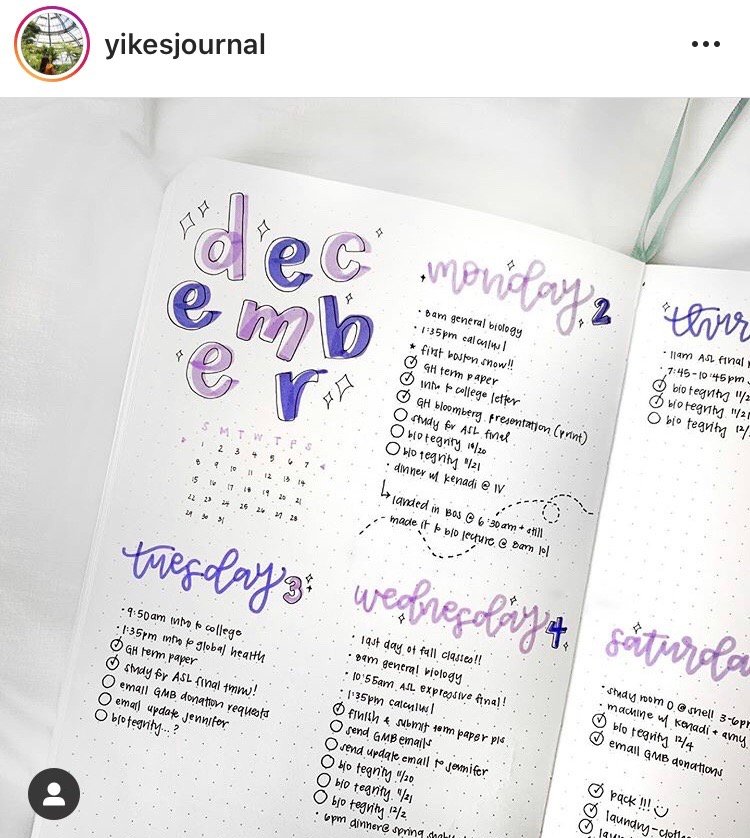 yikesjournal
december
S M T W T F S
1 2 3 4 5 6 7
8 9 10 11 12 13 14
15 16 17 18 19 20 21
22 23 24 25 26 27 28
29 30 31
monday 2
• 8am general biology
• 1:35pm calculus 1
★ first boston snow!!
GH term paper
intro to college letter
GH bloomberg presentation (print)
study for ASL final
bio tegrity 10/20
bio tegrity 11/21
• dinner w/ kenadi @ IV
landed in BOS @ 6:30am + still
made it to bio lecture @ 8am lol
tuesday 3
• 9:50am intro to college
• 1:35pm intro to global health
GH term paper
study for ASL final tmrw!
email GMB donation requests
email update jennifer
bio tegrity...?
wednesday 4
• last day of fall classes!!
• 8am general biology
• 10:55am ASL expressive final!
• 1:35pm calculus 1
finish & submit term paper pls
send GMB emails
send update email to jennifer
bio tegrity 11/20
bio tegrity 11/21
bio tegrity 12/2
• 6pm dinner @ spring
thur
• 11am ASL final
• 7:45-10:45pm
bio tegrity 11/2
bio tegrity 11/21
bio tegrity 12/
saturda
• study room 0 @ snell 3-6p
• machine w/ kenadi + amy
bio tegrity 12/4
email GMB donations
pack!!!
laundry-clothe
laun